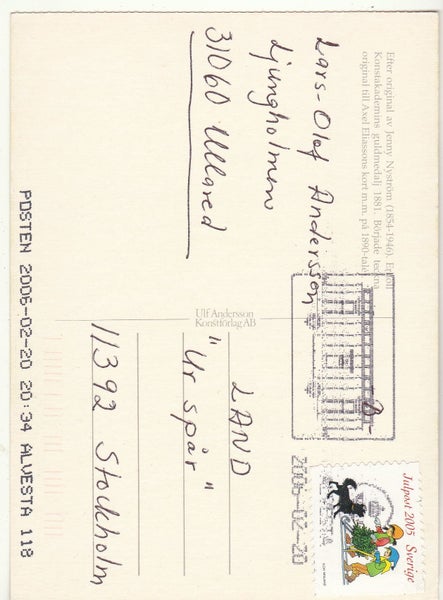 Efter original av Jenny Nyström (1854-1946). Erhöll
Konstakademins guldmedalj 1881. Började teckna
original till Axel Eliassons kort m.m. på 1890-talet.
Lars-Olof Andersson
Ljungholmen
31060 Ullared
Ulf Andersson
Konstförlag AB
LAND
"Ur spår"
11392 Stockholm
Julpost 2005 Sverige
2006-02-20
POSTEN 2006-02-20 20:34 ALVESTA 118